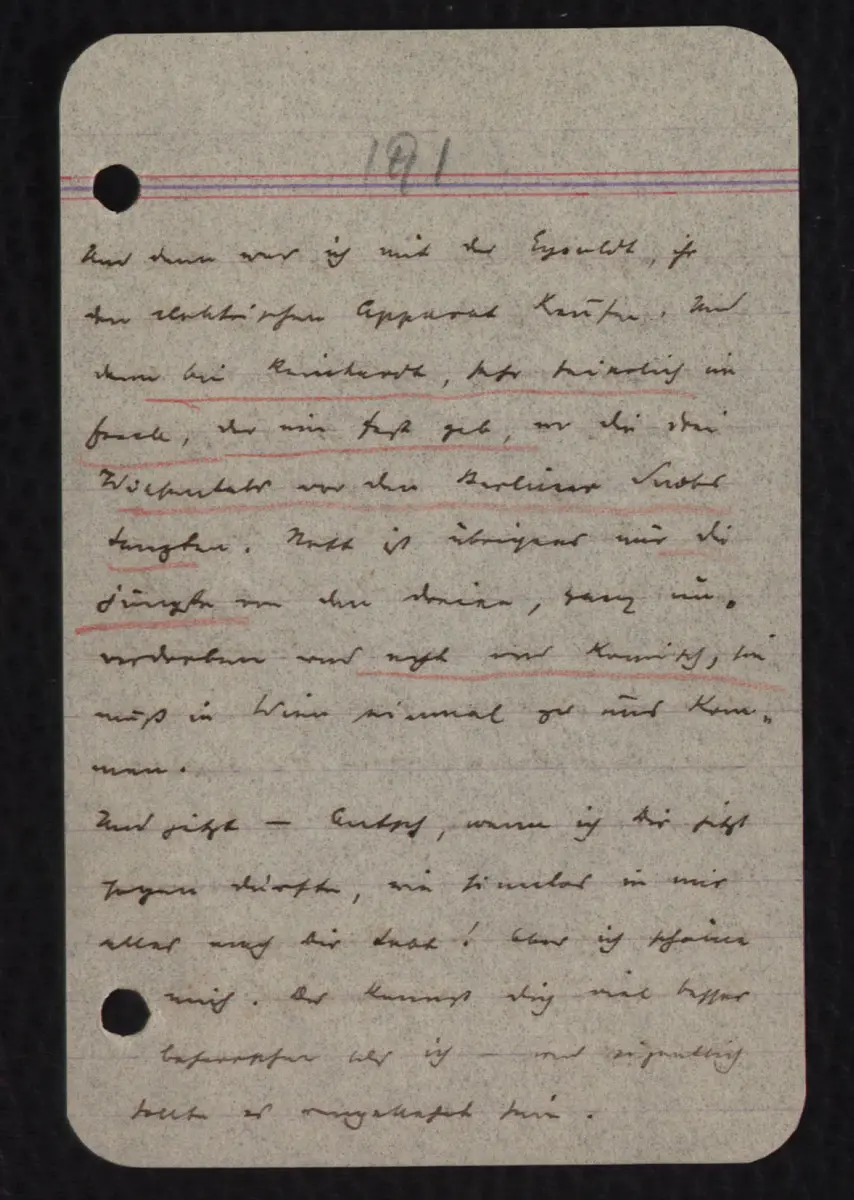 191
Und dann war ich mit der Eysoldt, ihr
den elektrischen Apparat kaufen. Und
dann bei Reinhardt, sehr feierlich im
Frack, der ein Fest gab, wo die drei
Wiesenthals vor den Berliner Snobs
tanzten. Nett ist übrigens nur die
jüngste von den dreien, ganz un-
verdorben und echt und komisch, sie
muß in Wien einmal zu uns kom-
men.
Und jetzt – , wenn ich Dir jetzt
sagen dürfte, wie sinnlos in mir
alles nach Dir tobt! Aber ich schäme
mich. Du kannst dich viel besser
beherrschen als ich – und eigentlich
sollte es umgekehrt sein.